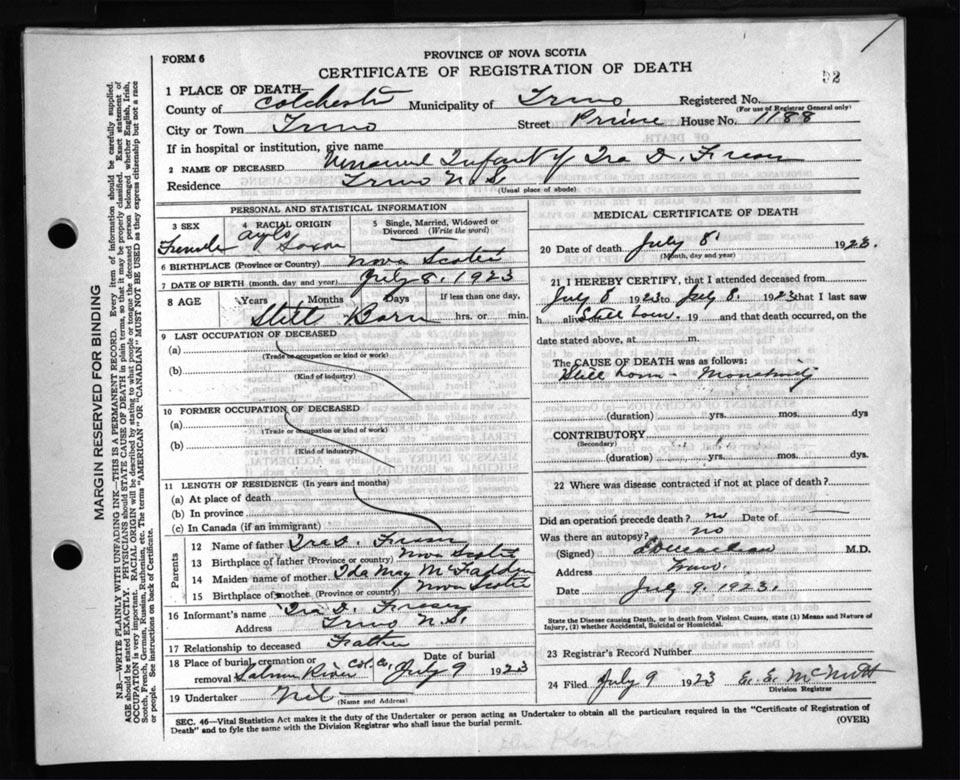 FORM 6
PROVINCE OF NOVA SCOTIA
CERTIFICATE OF REGISTRATION OF DEATH
52
1 PLACE OF DEATH—
County of Colchester Municipality of Truro Registered No.
(For use of Registrar General only)
City or Town Truro Street Prince House No. 1188
If in hospital or institution, give name
2 NAME OF DECEASED Unnamed Infant of Ira D.
Residence Truro N.S.
(Usual place of abode)
PERSONAL AND STATISTICAL INFORMATION
3 SEX 4 RACIAL ORIGIN 5 Single, Married, Widowed or Divorced (Write the word)
Female Anglo Saxon
6 BIRTHPLACE (Province or Country) Nova Scotia
7 DATE OF BIRTH (month, day and year) July 8. 1923
8 AGE Years Months Days If less than one day,
Still Born hrs. or min.
9 LAST OCCUPATION OF DECEASED
(a)
(Trade or occupation or kind of work)
(b)
(Kind of industry)
10 FORMER OCCUPATION OF DECEASED
(a)
(Trade or occupation or kind of work)
(b)
(Kind of industry)
11 LENGTH OF RESIDENCE (In years and months)
(a) At place of death
(b) In province
(c) In Canada (if an immigrant)
Parents
12 Name of father Ira D.
13 Birthplace of father (Province or country) Nova Scotia
14 Maiden name of mother Ida May McFadden
15 Birthplace of mother (Province or country) Nova Scotia
16 Informant's name Ira D.
Address Truro N.S.
17 Relationship to deceased Father
18 Place of burial, cremation or removal Salmon River Col. Co. Date of burial July 9 1923
19 Undertaker Nil
(Name and Address)
MEDICAL CERTIFICATE OF DEATH
20 Date of death July 8. 1923.
(Month, day and year)
21 I HEREBY CERTIFY, that I attended deceased from
July 8 1923 to July 8. 1923 that I last saw
h alive on Still born. 19 and that death occurred, on the
date stated above, at m.
The CAUSE OF DEATH was as follows:
Still born -
(duration) yrs. mos. dys
CONTRIBUTORY
(Secondary)
(duration) yrs. mos. dys.
22 Where was disease contracted if not at place of death?
Did an operation precede death? no Date of
Was there an autopsy? no
(Signed) M.D.
Address Truro.
Date July 9. 1923.
State the Disease causing Death, or in death from Violent Causes, state (1) Means and Nature of Injury, (2) whether Accidental, Suicidal or Homicidal.
23 Registrar's Record Number
24 Filed July 9 1923 E. E. McNutt
Division Registrar
SEC. 46—Vital Statistics Act makes it the duty of the Undertaker or person acting as Undertaker to obtain all the particulars required in the "Certificate of Registration of
Death" and to fyle the same with the Division Registrar who shall issue the burial permit.
(OVER)
MARGIN RESERVED FOR BINDING
N.B.—WRITE PLAINLY WITH UNFADING INK—THIS IS A PERMANENT RECORD. Every item of information should be carefully supplied.
AGE should be stated EXACTLY. PHYSICIANS should STATE CAUSE OF DEATH in plain terms, so that it may be properly classified. Exact statement of
OCCUPATION is very important. RACIAL ORIGIN will be described by stating to what people or tongue the deceased person belonged whether English, Irish,
Scotch, French, German, Russian, Ruthenian, etc. The terms "AMERICAN" OR "CANADIAN" MUST NOT BE USED as they express citizenship but not a race
or people. See instructions on back of Certificate.